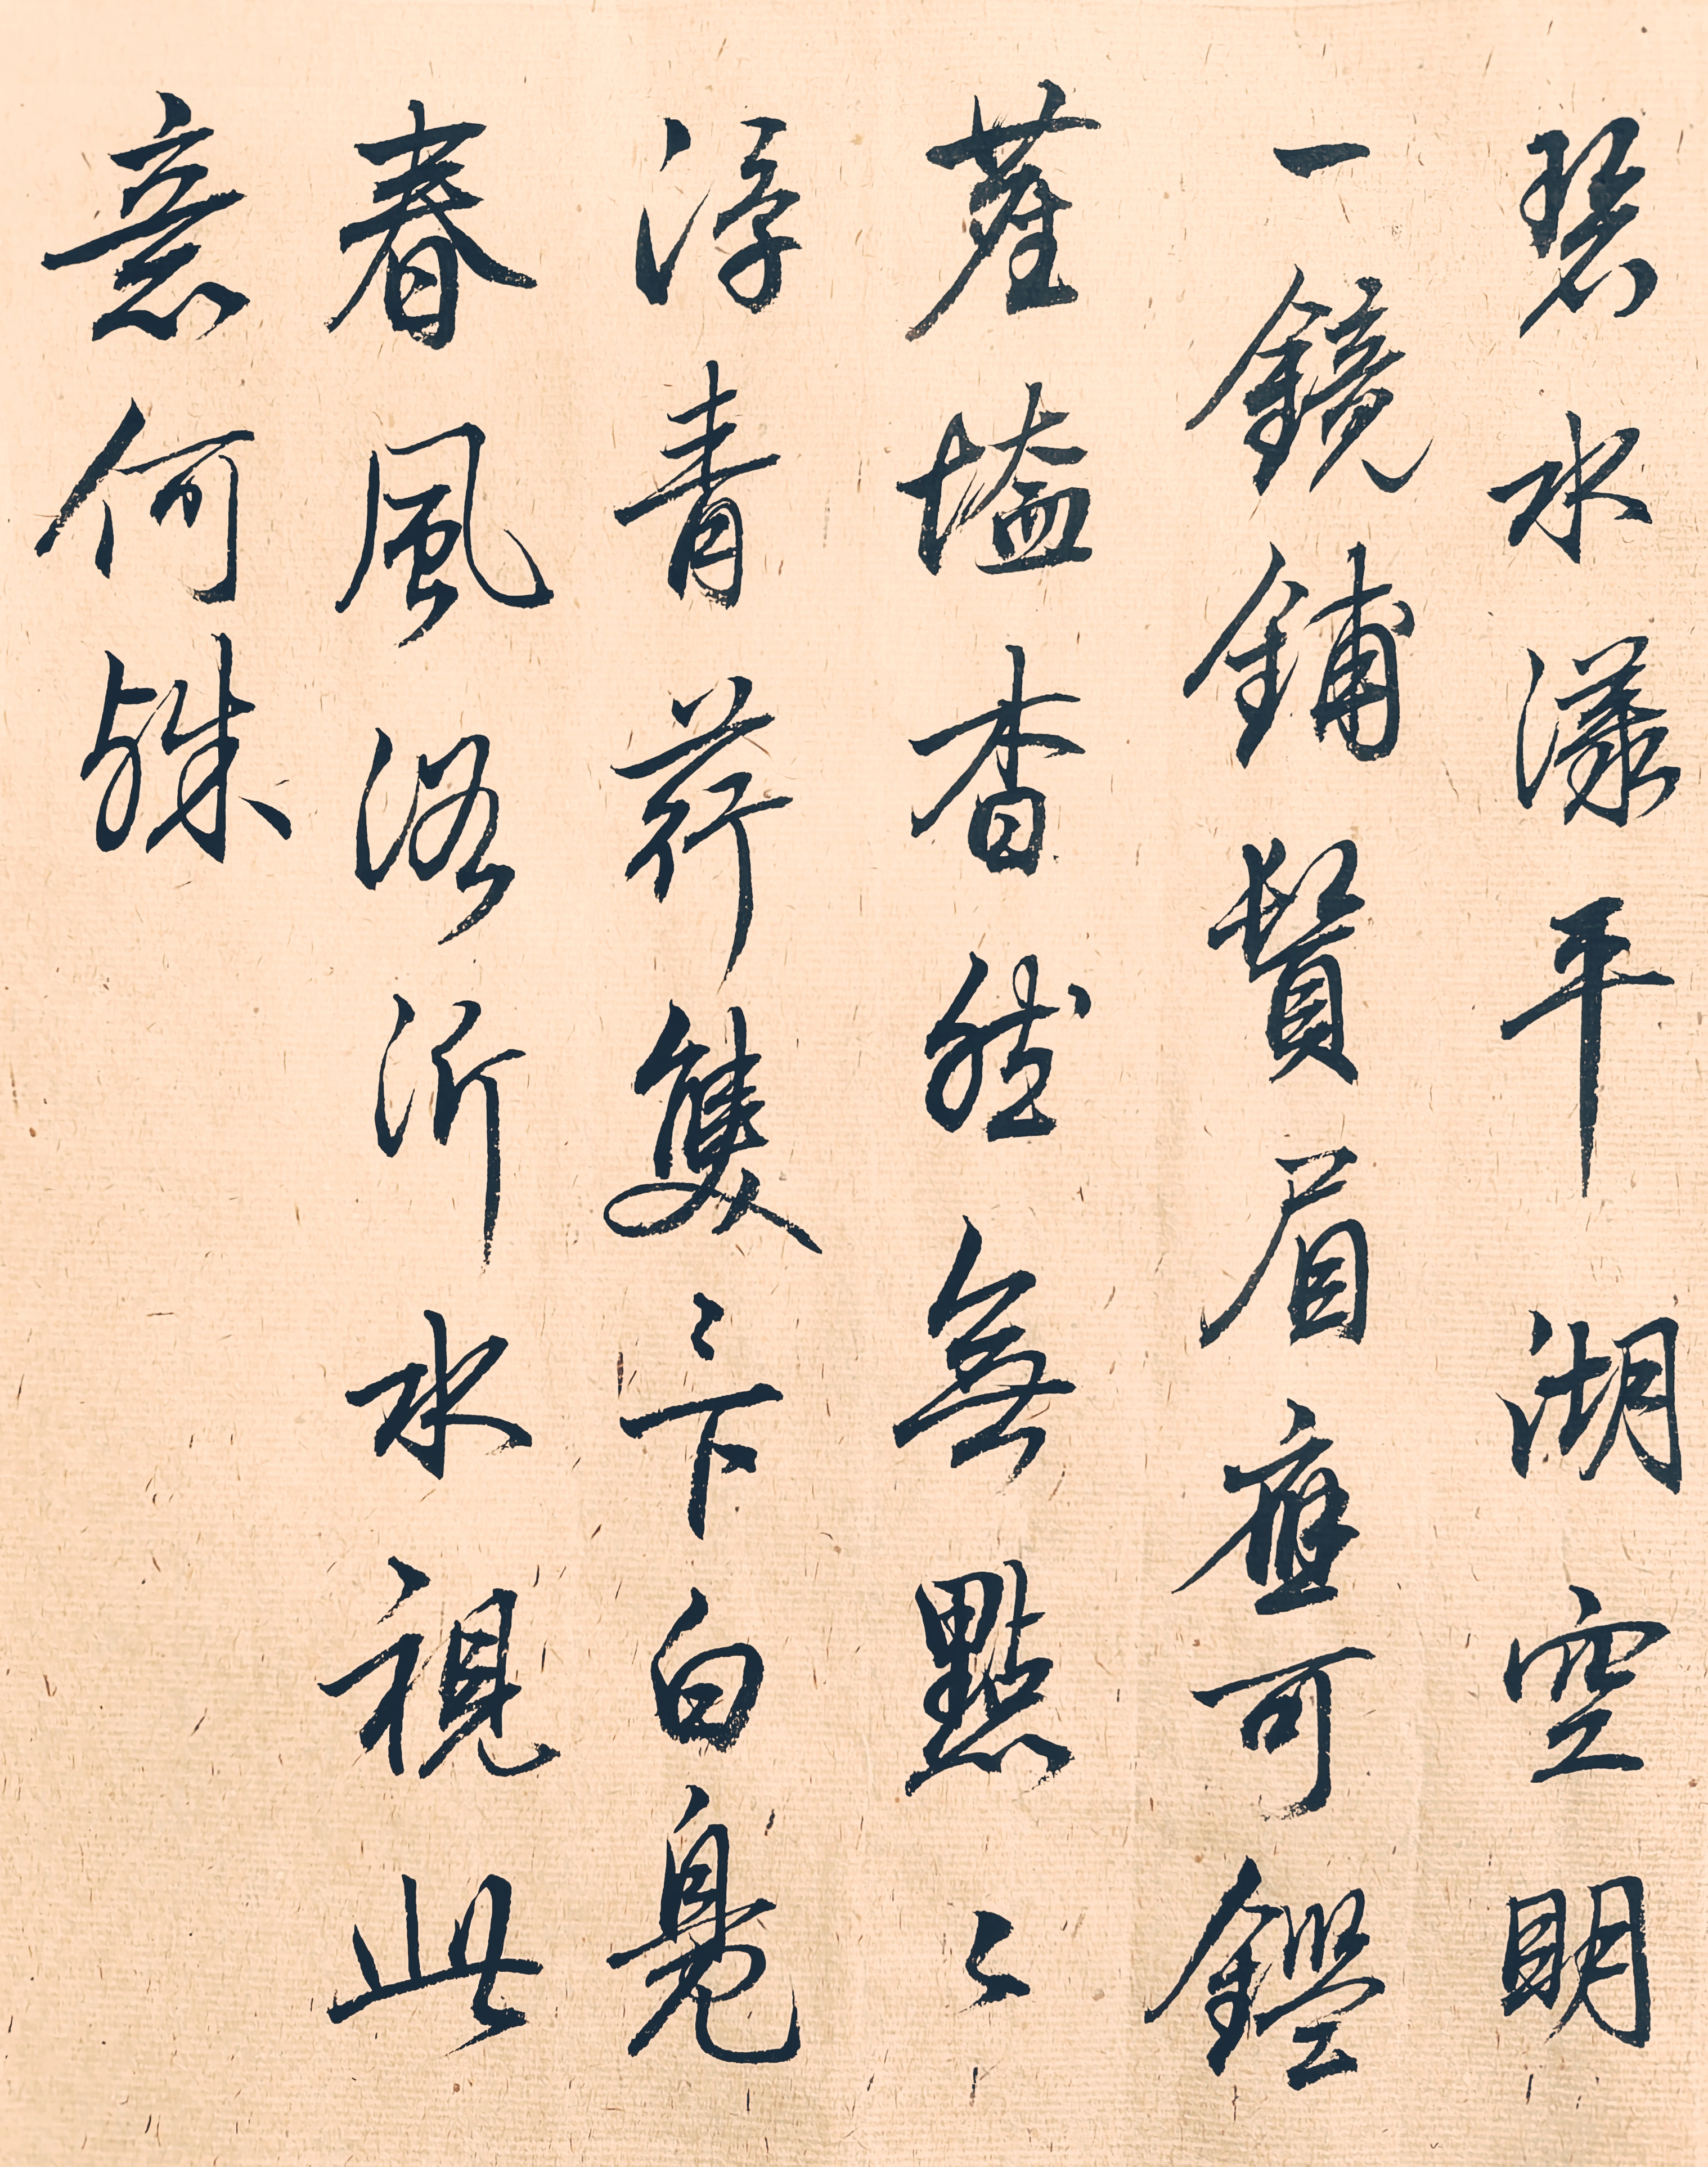 碧水漾平湖空明
一鏡鋪鬚眉應可鑑
塵壒杳然無點〻
浮青荇雙〻下白鳧
春風浴沂水視此
意何殊